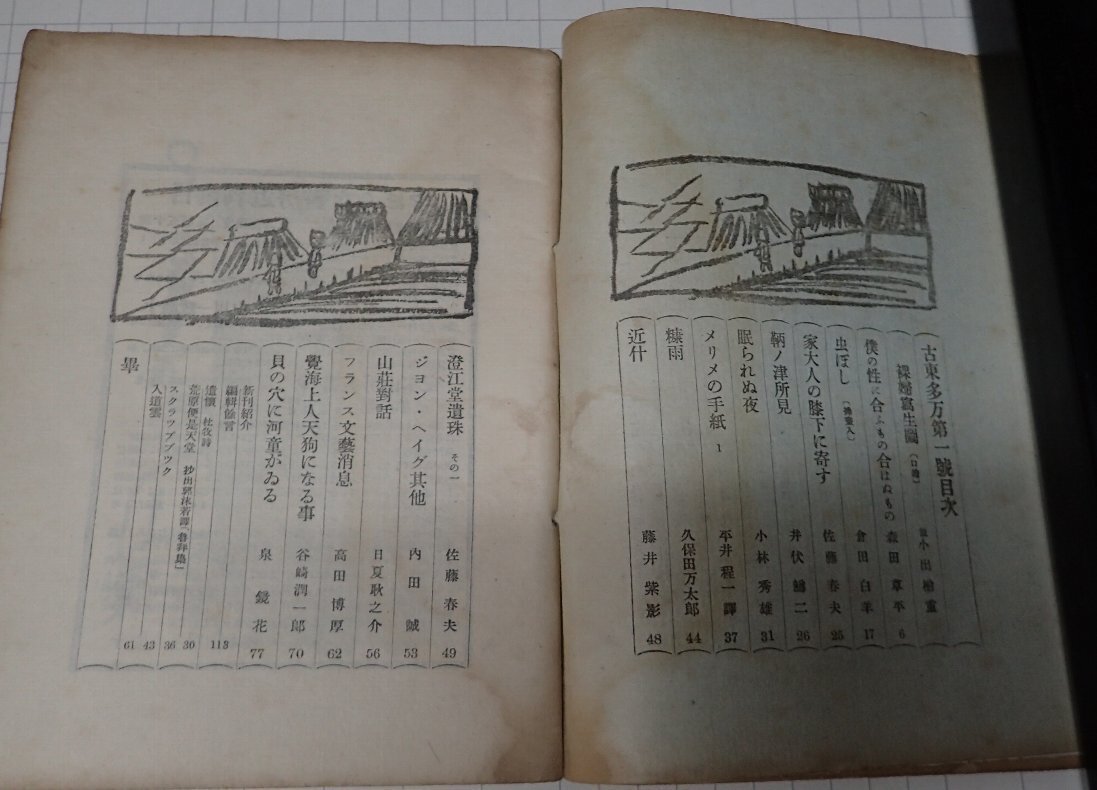 古東多万第一號目次
裸婦寫生圖（口繪） 故小出楢重
僕の性に合ふもの合はぬもの 森田草平 6
虫ぼし（挿畫入） 倉田白羊 17
家大人の膝下に寄す 佐藤春夫 25
鞆ノ津所見 井伏鱒二 26
眠られぬ夜 小林秀雄 31
メリメの手紙 1 平井程一譯 37
糠雨 久保田万太郎 44
近什 藤井紫影 48
澄江堂遺珠 その一 佐藤春夫 49
ジヨン・ヘイグ其他 内田誠 53
山莊對話 日夏耿之介 56
フランス文藝消息 高田博厚 62
覺海上人天狗になる事 谷崎潤一郎 70
貝の穴に河童がゐる 泉鏡花 77
新刊紹介
編輯餘言 113
遣懷 杜牧詩 30
荒原便是天堂 抄出郭沫若譯「魯拜集」 36
スクラツプブツク 43
入道雲 61
畢